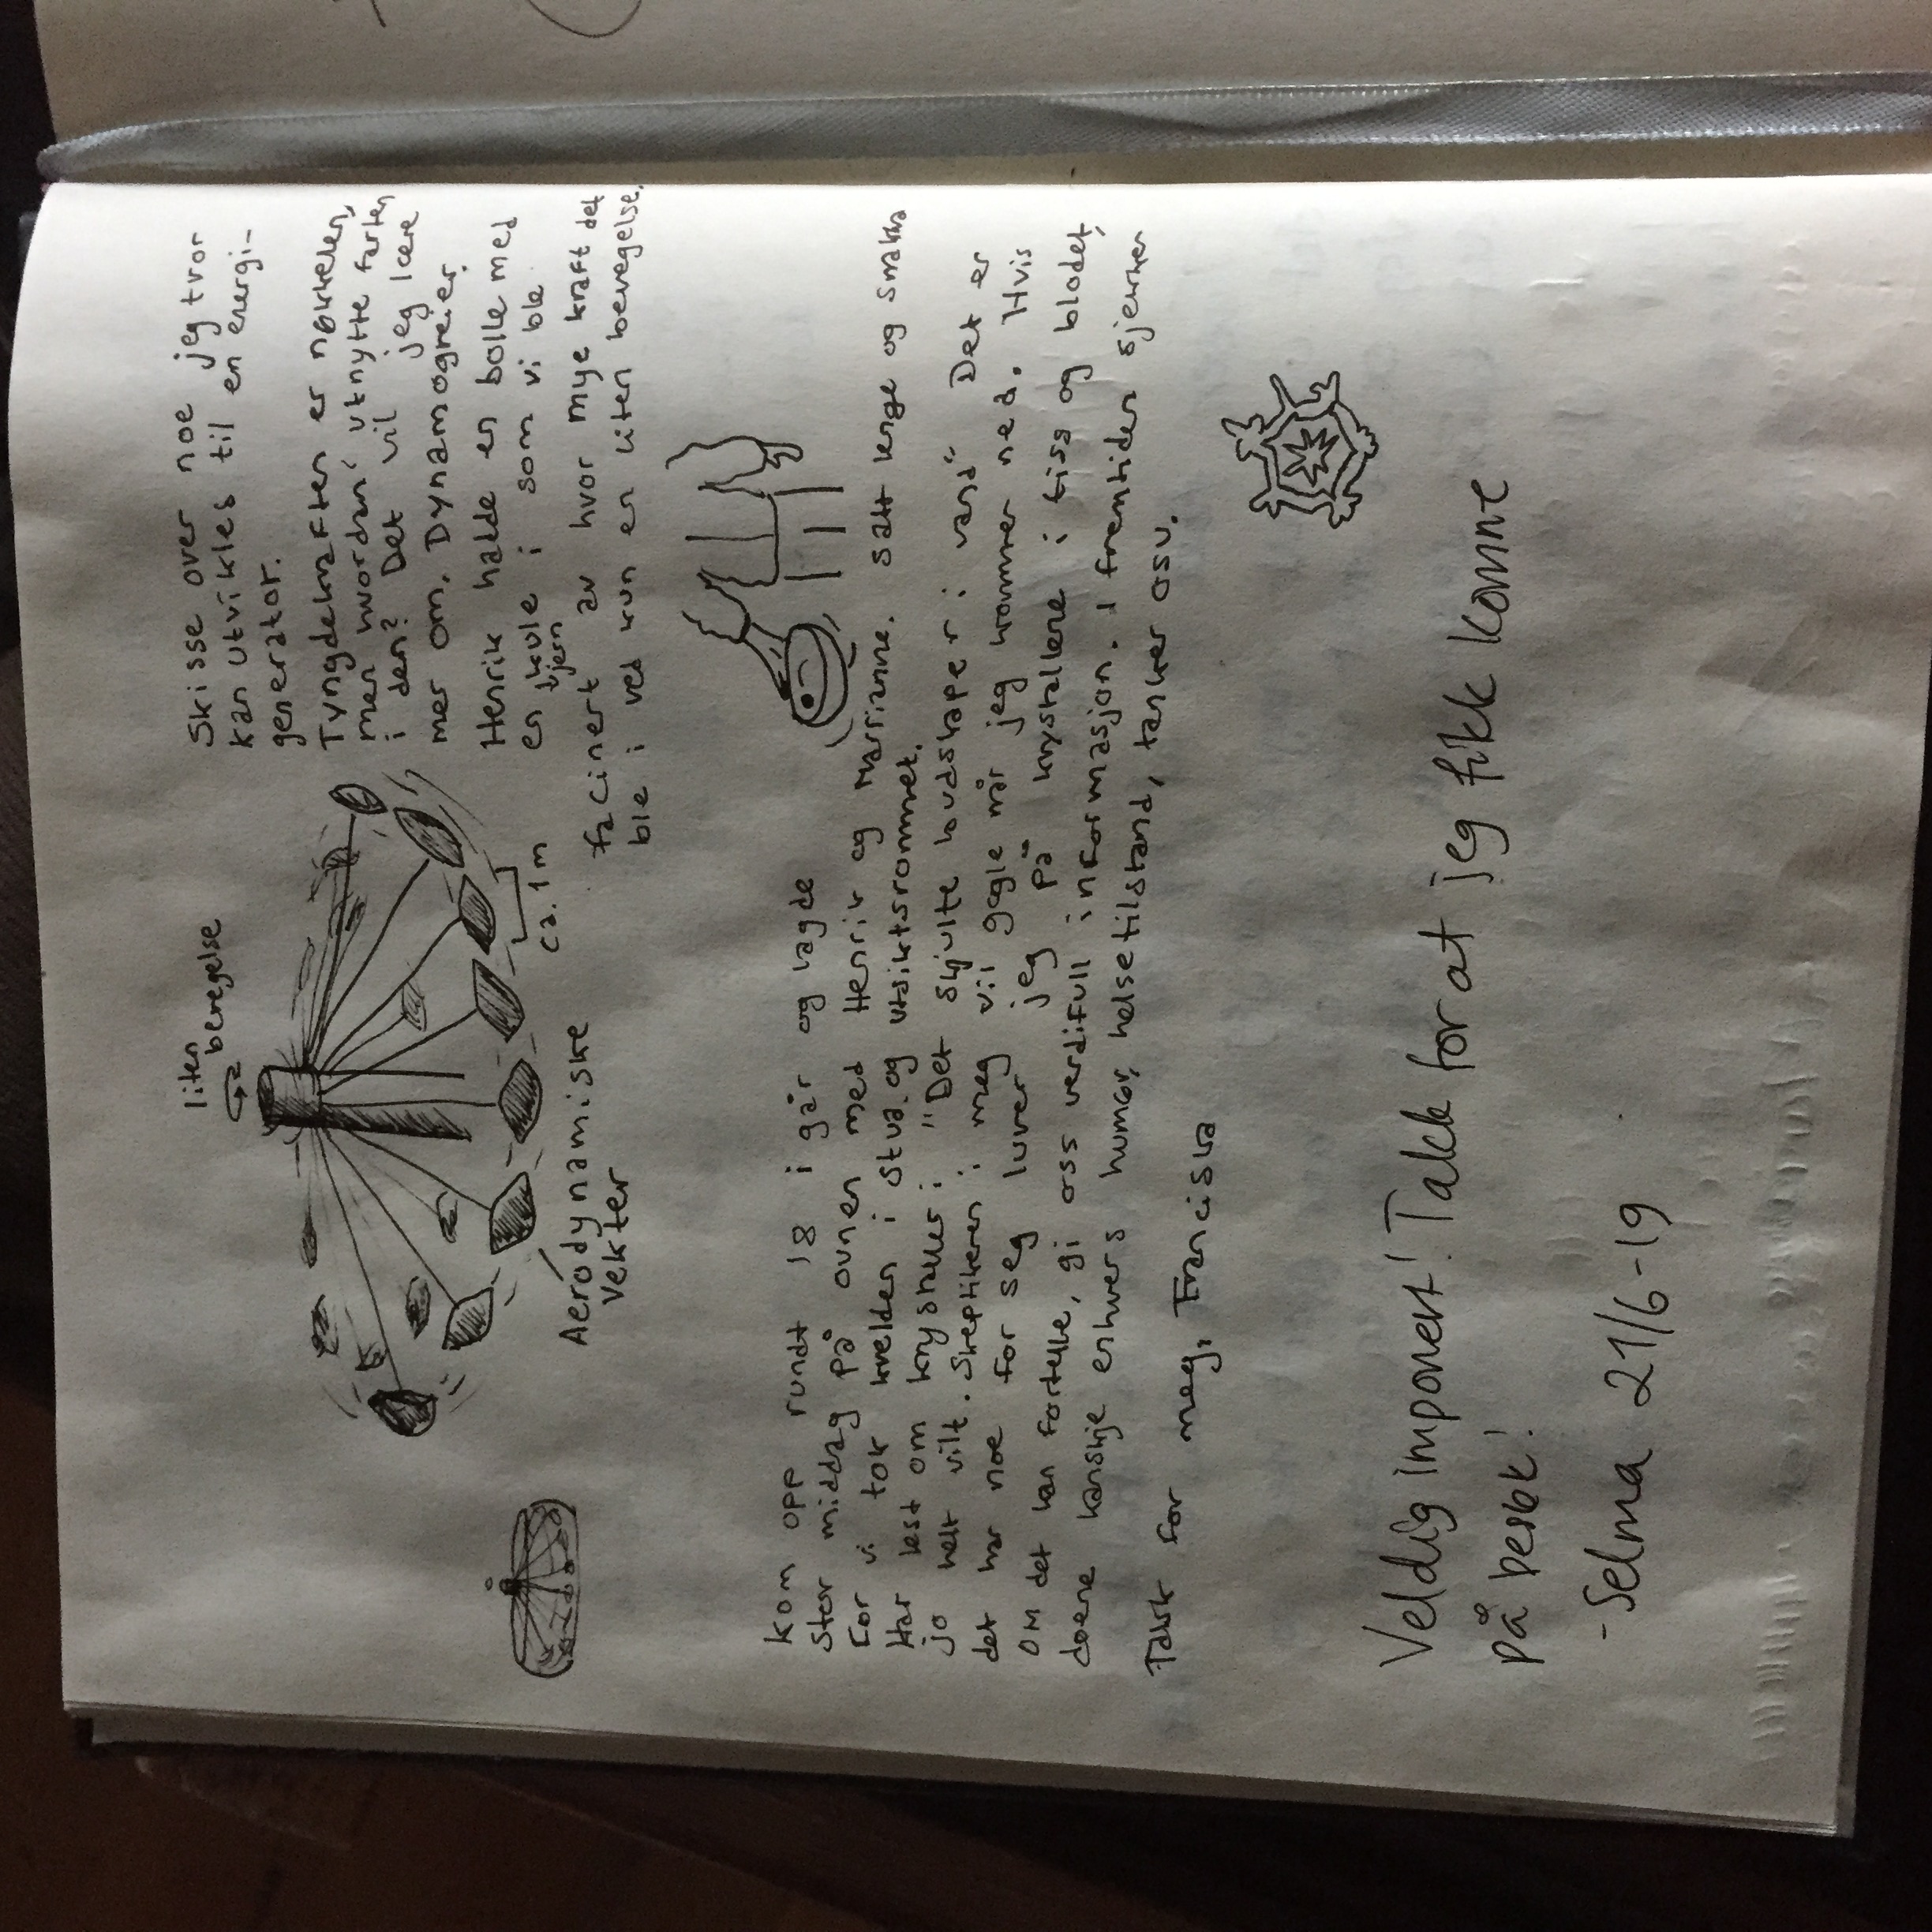 liten
bevegelse
Aerodynamiske
vekter
ca. 1m
Skisse over noe jeg tror
kan utvikles til en energi-
generator.
Tyngdekraften er nøkkelen,
men hvordan utnytte farten
i den? Det vil jeg lære
mer om. Dynamogreier.
Henrik hadde en bolle med
en kule i som vi ble
jern
facinert av hvor mye kraft det
ble i ved kun en liten bevegelse.
Kom opp rundt 18 i går og lagde
stor middag på ovnen med Henrik og Marrianne. Satt lenge og snakka
før vi tok kvelden i stua og utsiktsrommet.
Har lest om krystaller i "Det skjulte budskapet i vand" Det er
jo helt vilt. Skeptikeren i meg vil gøgle når jeg kommer ned. Hvis
det har noe for seg lurer jeg på krystallene i tiss og blodet,
om det kan fortelle, gi oss verdifull informasjon. I fremtiden sjekker
doene kanskje enhvers humør, helsetilstand, tanker osv.
Takk for meg, Franciska
Veldig imponert! Takk for at jeg fikk komme
på besøk!
-Selma 21/6-19